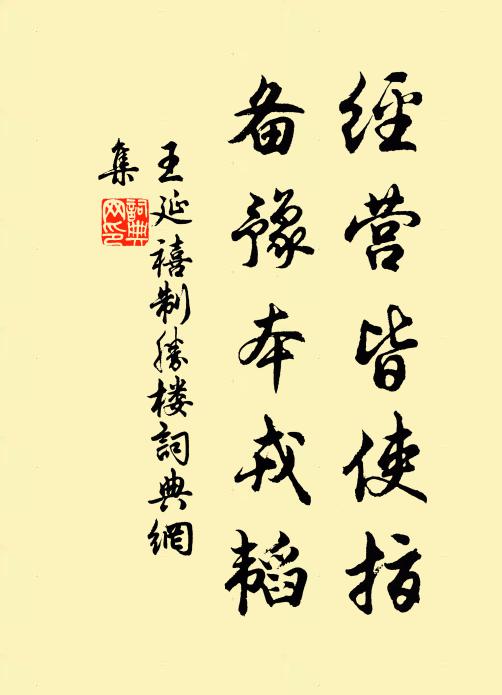 經营皆使指
备豫本戎韬
王延禧制胜楼詞典網
集
詞典网印